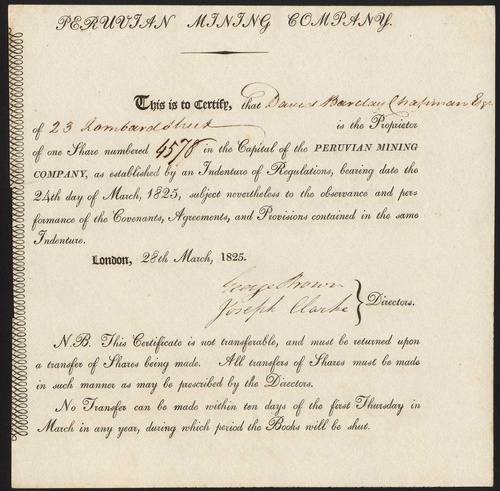 PERUVIAN MINING COMPANY.
This is to Certify, that David Barclay Chapman Esqr
of 23 Lombard Street is the Proprietor
of one Share numbered 4578 in the Capital of the PERUVIAN MINING
COMPANY, as established by an Indenture of Regulations, bearing date the
24th day of March, 1825, subject nevertheless to the observance and per-
formance of the Covenants, Agreements, and Provisions contained in the same
Indenture.
London, 28th March, 1825.
George Brown
Joseph Clarke } Directors.
N.B. This Certificate is not transferable, and must be returned upon
a transfer of Shares being made. All transfers of Shares must be made
in such manner as may be prescribed by the Directors.
No Transfer can be made within ten days of the first Thursday in
March in any year, during which period the Books will be shut.